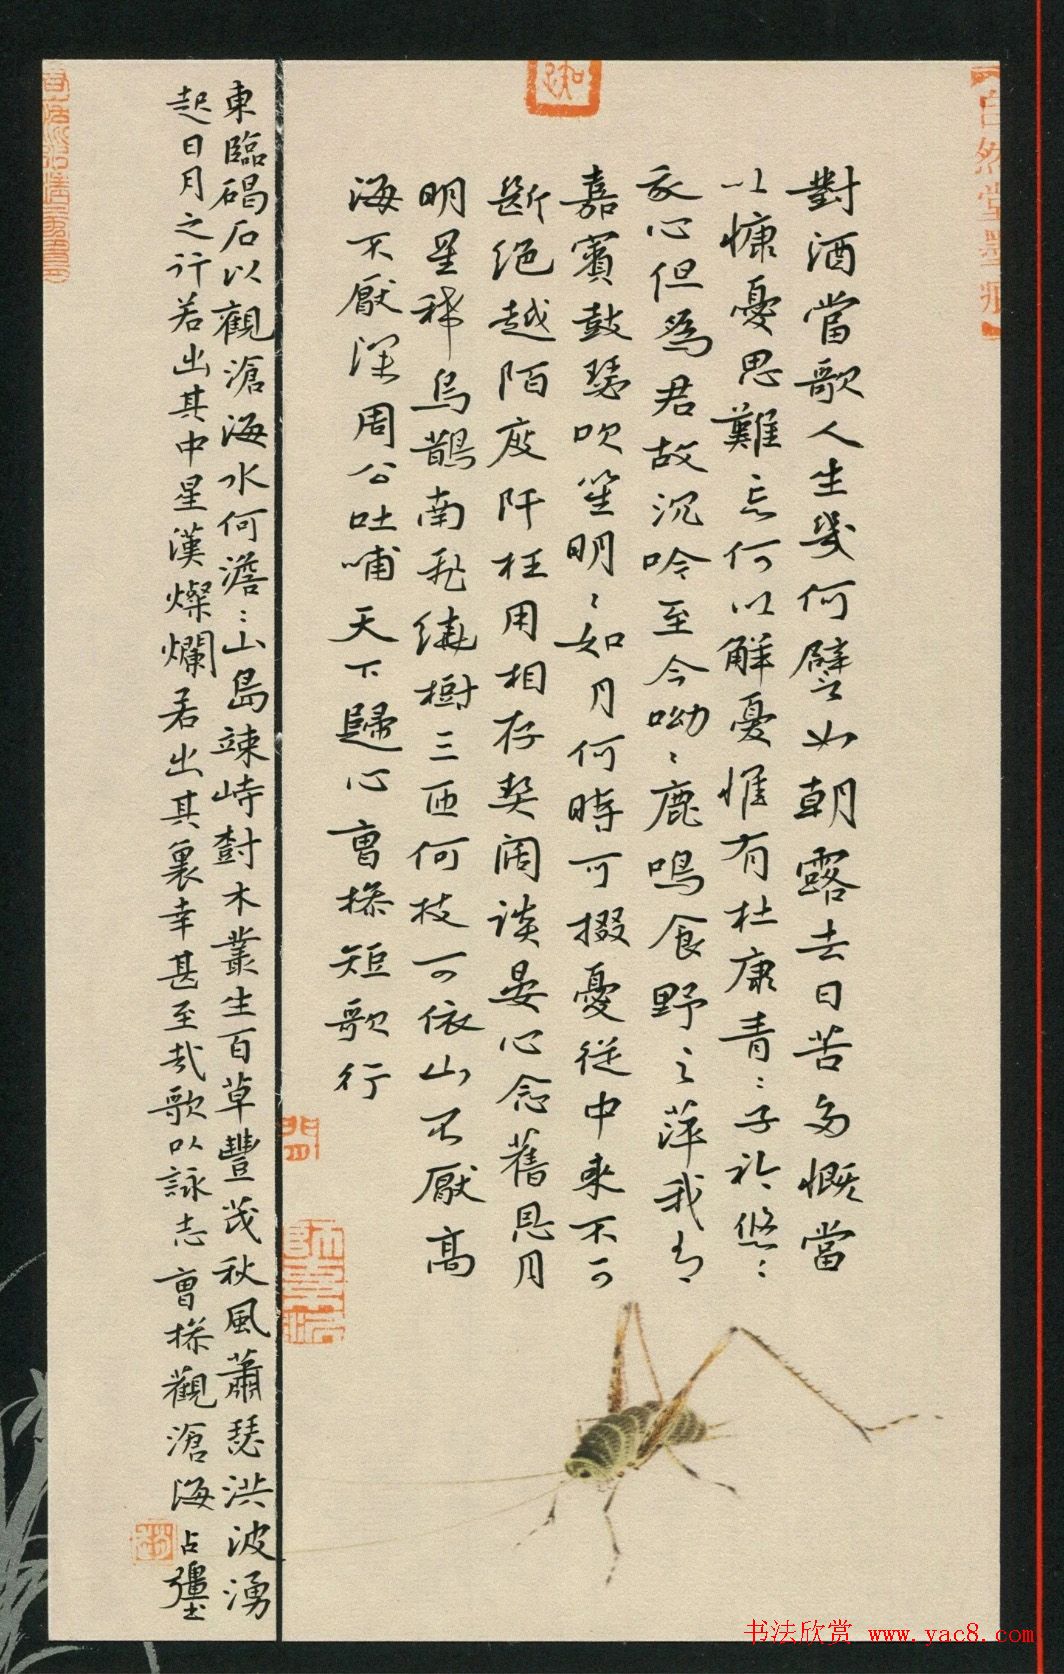 自然堂墨痕
對酒當歌人生幾何譬如朝露去日苦多慨當
以慷憂思難忘何以解憂惟有杜康青〻子衿悠〻
我心但為君故沉吟至今呦〻鹿鳴食野之萍我有
嘉賓鼓瑟吹笙明〻如月何時可掇憂從中來不可
斷絕越陌度阡枉用相存契闊談晏心念舊恩月
明星稀烏鵲南飛繞樹三匝何枝可依山不厭高
海不厭深周公吐哺天下歸心曹操短歌行
東臨碣石以觀滄海水何澹〻山島竦峙樹木叢生百草豐茂秋風蕭瑟洪波湧
起日月之行若出其中星漢燦爛若出其裏幸甚至哉歌以詠志曹操觀滄海占疆
书法欣赏 www.yac8.com